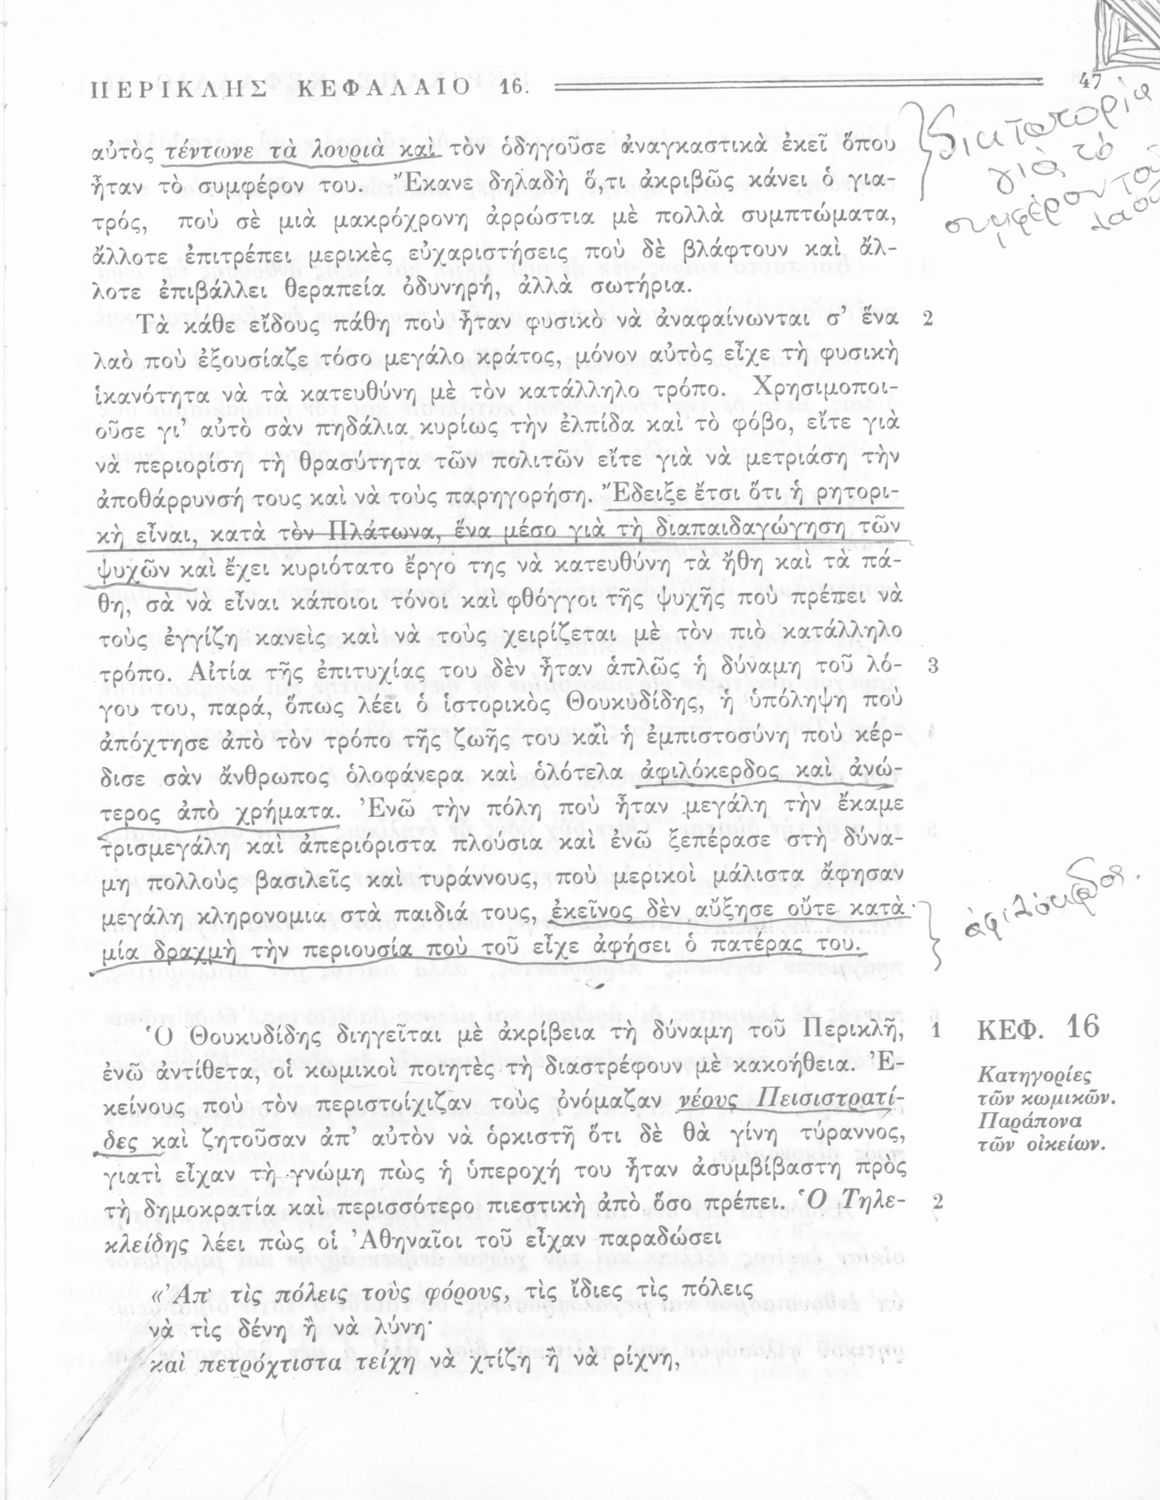 ΠΕΡΙΚΛΗΣ ΚΕΦΑΛΑΙΟ 16. 47
αὐτὸς τέντωνε τὰ λουριὰ καὶ τὸν ὁδηγοῦσε ἀναγκαστικὰ ἐκεῖ ὅπου
ἦταν τὸ συμφέρον του. Ἔκανε δηλαδὴ ὅ,τι ἀκριβῶς κάνει ὁ για-
τρός, ποὺ σὲ μιὰ μακρόχρονη ἀρρώστια μὲ πολλὰ συμπτώματα,
ἄλλοτε ἐπιτρέπει μερικὲς εὐχαριστήσεις ποὺ δὲ βλάφτουν καὶ ἄλ-
λοτε ἐπιβάλλει θεραπεία ὀδυνηρή, ἀλλὰ σωτήρια.
δικτατορία
γιὰ τὸ
συμφέρον τοῦ
λαοῦ
Τὰ κάθε εἴδους πάθη ποὺ ἦταν φυσικὸ νὰ ἀναφαίνωνται σ' ἕνα 2
λαὸ ποὺ ἐξουσίαζε τόσο μεγάλο κράτος, μόνον αὐτὸς εἶχε τὴ φυσικὴ
ἱκανότητα νὰ τὰ κατευθύνη μὲ τὸν κατάλληλο τρόπο. Χρησιμοποι-
οῦσε γι' αὐτὸ σὰν πηδάλια κυρίως τὴν ἐλπίδα καὶ τὸ φόβο, εἴτε γιὰ
νὰ περιορίση τὴ θρασύτητα τῶν πολιτῶν εἴτε γιὰ νὰ μετριάση τὴν
ἀποθάρρυνσή τους καὶ νὰ τοὺς παρηγορήση. Ἔδειξε ἔτσι ὅτι ἡ ρητορι-
κὴ εἶναι, κατὰ τὸν Πλάτωνα, ἕνα μέσο γιὰ τὴ διαπαιδαγώγηση τῶν
ψυχῶν καὶ ἔχει κυριότατο ἔργο της νὰ κατευθύνη τὰ ἤθη καὶ τὰ πά-
θη, σὰ νὰ εἶναι κάποιοι τόνοι καὶ φθόγγοι τῆς ψυχῆς ποὺ πρέπει νὰ
τοὺς ἐγγίζη κανεὶς καὶ νὰ τοὺς χειρίζεται μὲ τὸν πιὸ κατάλληλο
τρόπο. Αἰτία τῆς ἐπιτυχίας του δὲν ἦταν ἁπλῶς ἡ δύναμη τοῦ λό- 3
γου του, παρά, ὅπως λέει ὁ ἱστορικὸς Θουκυδίδης, ἡ ὑπόληψη ποὺ
ἀπόχτησε ἀπὸ τὸν τρόπο τῆς ζωῆς του καὶ ἡ ἐμπιστοσύνη ποὺ κέρ-
δισε σὰν ἄνθρωπος ὁλοφάνερα καὶ ὁλότελα ἀφιλόκερδος καὶ ἀνώ-
τερος ἀπὸ χρήματα. Ἐνῶ τὴν πόλη ποὺ ἦταν μεγάλη τὴν ἔκαμε
τρισμεγάλη καὶ ἀπεριόριστα πλούσια καὶ ἐνῶ ξεπέρασε στὴ δύνα-
μη πολλοὺς βασιλεῖς καὶ τυράννους, ποὺ μερικοὶ μάλιστα ἄφησαν
μεγάλη κληρονομια στὰ παιδιά τους, ἐκεῖνος δὲν αὔξησε οὔτε κατὰ
μία δραχμὴ τὴν περιουσία ποὺ τοῦ εἶχε ἀφήσει ὁ πατέρας του.
ἀφιλόκερδος.
Ὁ Θουκυδίδης διηγεῖται μὲ ἀκρίβεια τὴ δύναμη τοῦ Περικλῆ, 1
ἐνῶ ἀντίθετα, οἱ κωμικοὶ ποιητὲς τὴ διαστρέφουν μὲ κακοήθεια. Ἐ-
κείνους ποὺ τὸν περιστοίχιζαν τοὺς ὀνόμαζαν νέους Πεισιστρατί-
δες καὶ ζητοῦσαν ἀπ' αὐτὸν νὰ ὁρκιστῆ ὅτι δὲ θὰ γίνη τύραννος,
γιατὶ εἶχαν τὴ γνώμη πὼς ἡ ὑπεροχή του ἦταν ἀσυμβίβαστη πρὸς
τὴ δημοκρατία καὶ περισσότερο πιεστικὴ ἀπὸ ὅσο πρέπει. Ὁ Τηλε- 2
κλείδης λέει πὼς οἱ Ἀθηναῖοι τοῦ εἶχαν παραδώσει
ΚΕΦ. 16
Κατηγορίες
τῶν κωμικῶν.
Παράπονα
τῶν οἰκείων.
«Ἀπ' τὶς πόλεις τοὺς φόρους, τὶς ἴδιες τὶς πόλεις
νὰ τὶς δένη ἢ νὰ λύνη·
καὶ πετρόχτιστα τείχη νὰ χτίζη ἢ νὰ ρίχνη,